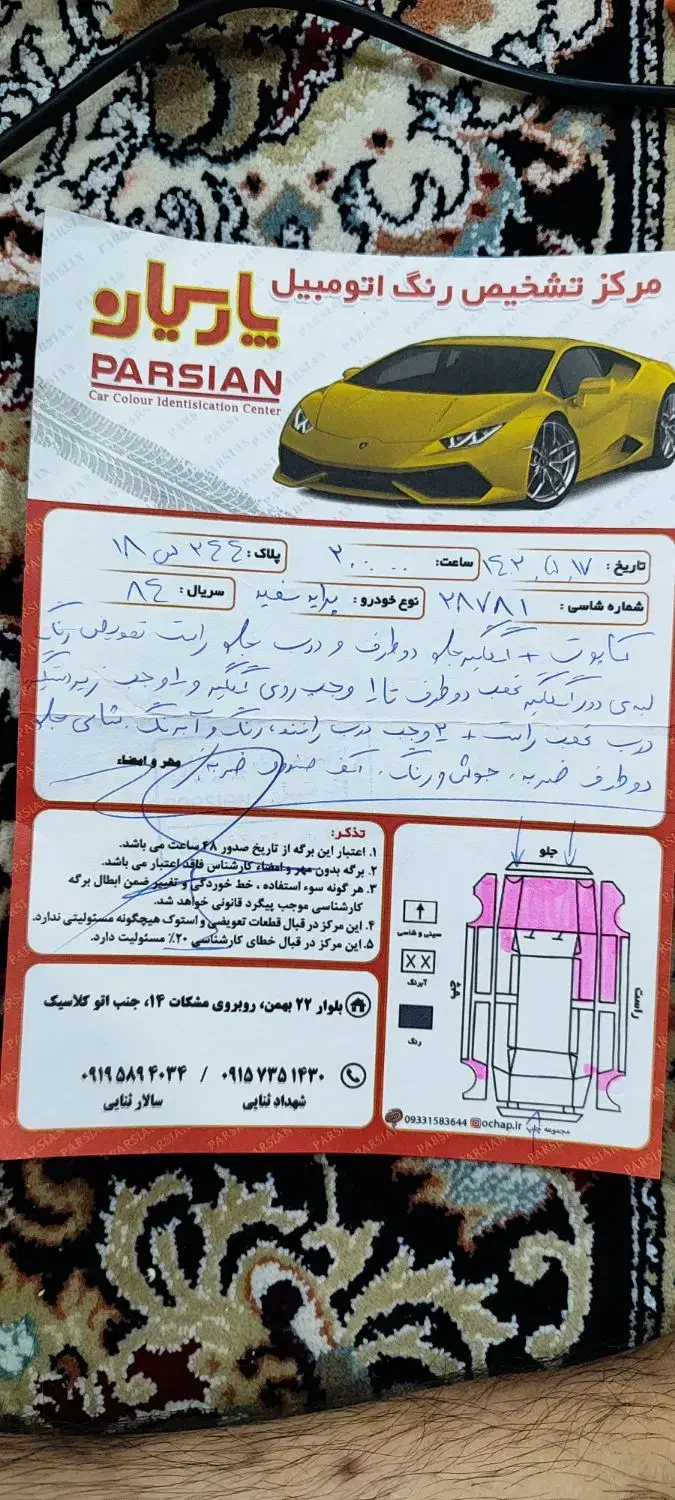 مرکز تشخیص رنگ اتومبیل
پارسیان
PARSIAN
Car Colour Identisication Center
تاریخ :
ساعت:
پلاک :
شماره شاسی : ۲۸۷۸۱
نوع خودرو : پراید سفید
سریال : ۸۴
کاپوت + گلگیر جلو دو طرف و درب جلو راست تعویض رنگ
لبه‌ی دور گلگیر عقب دو طرف تا ۱ وجب روی گلگیر و ۱ وجب زیر
درب عقب راست + ۲ وجب درب راننده، رنگ و آبرنگ. شاسی جلو
دو طرف ضربه، جوش و رنگ. کف صندوق ضربه.
مهر و امضاء
تذکر:
۱. اعتبار این برگه از تاریخ صدور ۴۸ ساعت می باشد.
۲. برگه بدون مهر و امضاء کارشناس فاقد اعتبار می باشد.
۳. هر گونه سوء استفاده ، خط خوردگی و تغییر ضمن ابطال برگه
کارشناسی موجب پیگرد قانونی خواهد شد.
۴. این مرکز در قبال قطعات تعویضی و استوک هیچگونه مسئولیتی ندارد.
۵. این مرکز در قبال خطای کارشناسی ۲۰٪ مسئولیت دارد.
جلو
سینی و شاسی
XX
آبرنگ
رنگ
چپ
راست
بلوار ۲۲ بهمن، روبروی مشکات ۱۴، جنب اتو کلاسیک
۰۹۱۵ ۷۳۵ ۱۴۳۰ / ۰۹۱۹ ۵۸۹ ۴۰۳۴
شهداد ثنایی
سالار ثنایی
09331583644 ochap.ir مجموعه چاپ